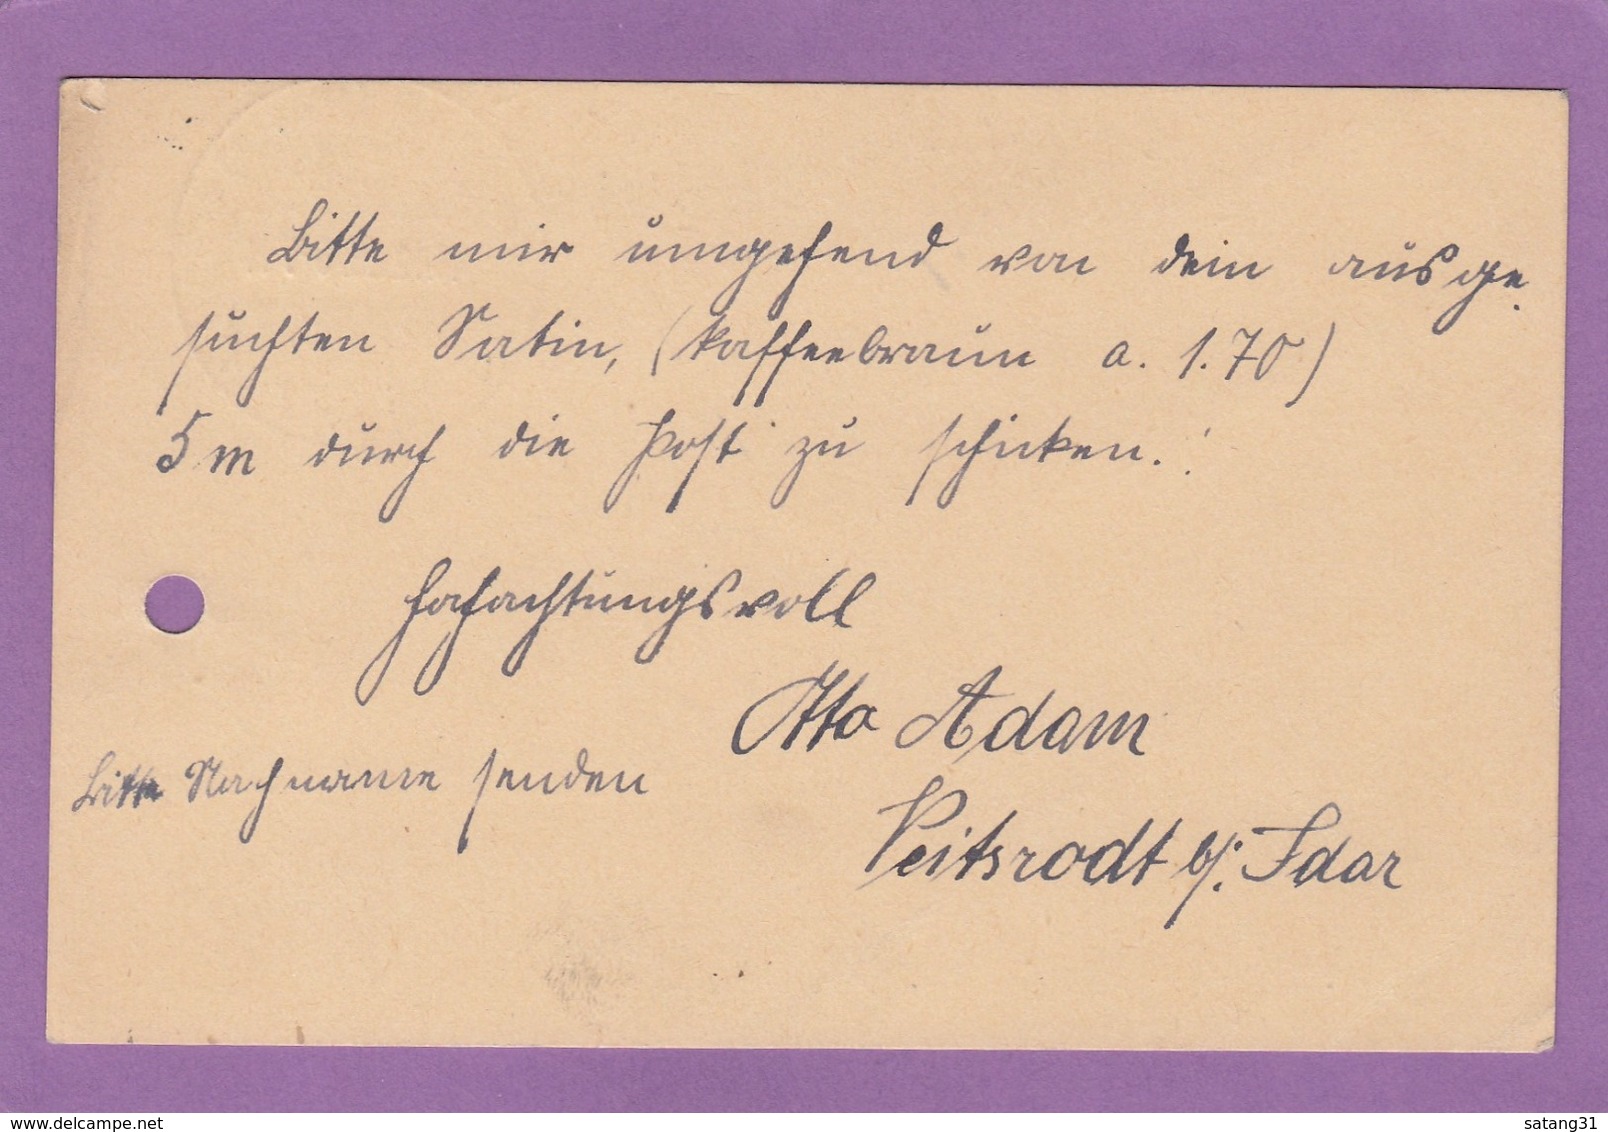 Bitte mir umgehend von dem ausge
suchten Satin, (kaffeebraun a. 1.70)
5 m durch die Post zu schicken.!
Hochachtungsvoll
Otto Adam
Bitte Nachname senden
Veitsrodt b/: Idar
delcampe.net
satang31